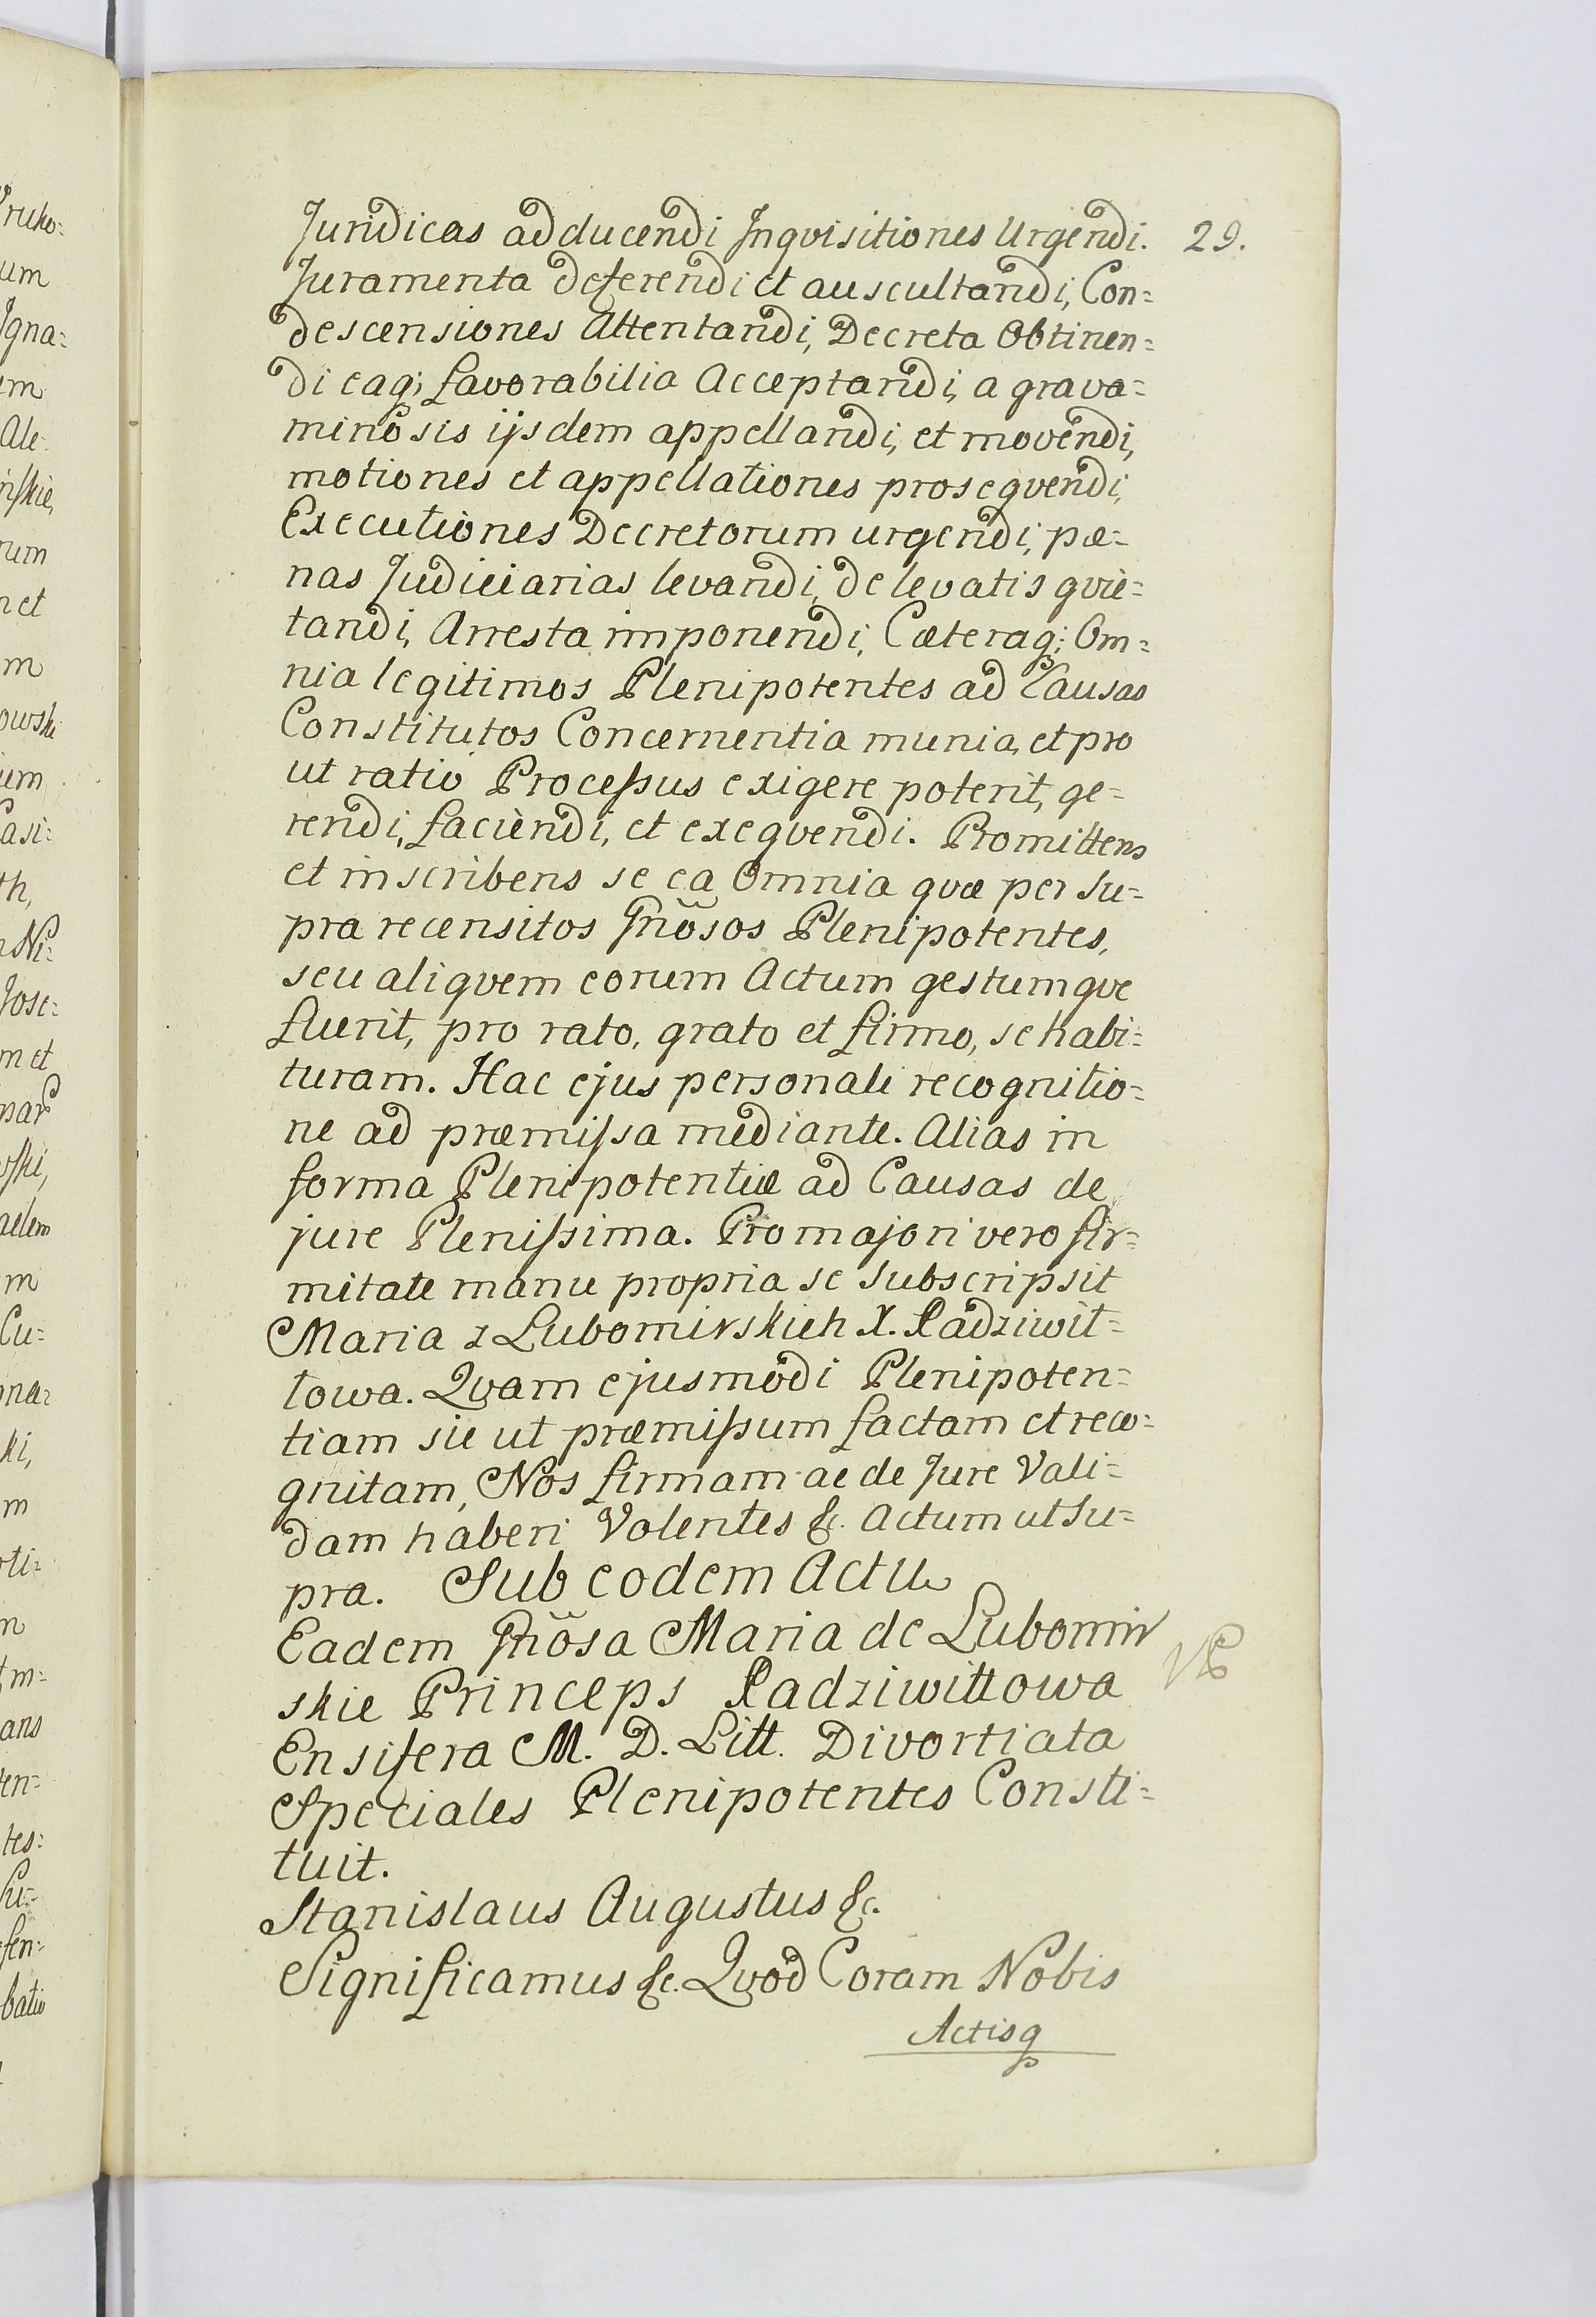 Juridicas adducendi Inqvisitiones Urgendi. 29.
Juramenta deferendi et auscultandi, Con=
descensiones Attentandi, Decreta Obtinen=
di eaq; favorabilia Acceptandi, a grava=
minosis ijsdem appellandi, et movendi,
motiones et appellationes proseqvendi,
Executiones Decretorum urgendi, pæ=
nas Judiciarias levandi, de levatis qvie=
tandi, Arresta imponendi, Cæteraq; Om=
nia legitimos Plenipotentes ad Causas
Constitutos Concernentia munia, et pro
ut ratio Processus exigere poterit, ge=
rendi, faciendi, et exeqvendi. Promittens
et inscribens se ea Omnia quæ per Su=
pra recensitos Gñosos Plenipotentes,
seu aliqvem eorum Actum gestumqve
fuerit, pro rato, grato et firmo, se habi=
turam. Hac ejus personali recognitio=
ne ad præmissa mediante. Alias in
forma Plenipotentiæ ad Causas de
jure Plenissima. Pro majori vero fir=
mitate manu propria se subscripsit
Maria z Lubomirskich X. Radziwił=
łowa. Qvam ejusmodi Plenipoten=
tiam sic ut præmissum factam et reco=
gnitam, Nos firmam ac de Jure Vali=
dam haberi Volentes &c. Actum ut Su=
pra. Sub eodem Actu
Eadem Gñosa Maria de Lubomir
skie Princeps Radziwiłłowa
Ensifera M. D. Litt. Divortiata
Speciales Plenipotentes Consti=
tuit.
Stanislaus Augustus &c.
Significamus &c. Qvod Coram Nobis
Actisq